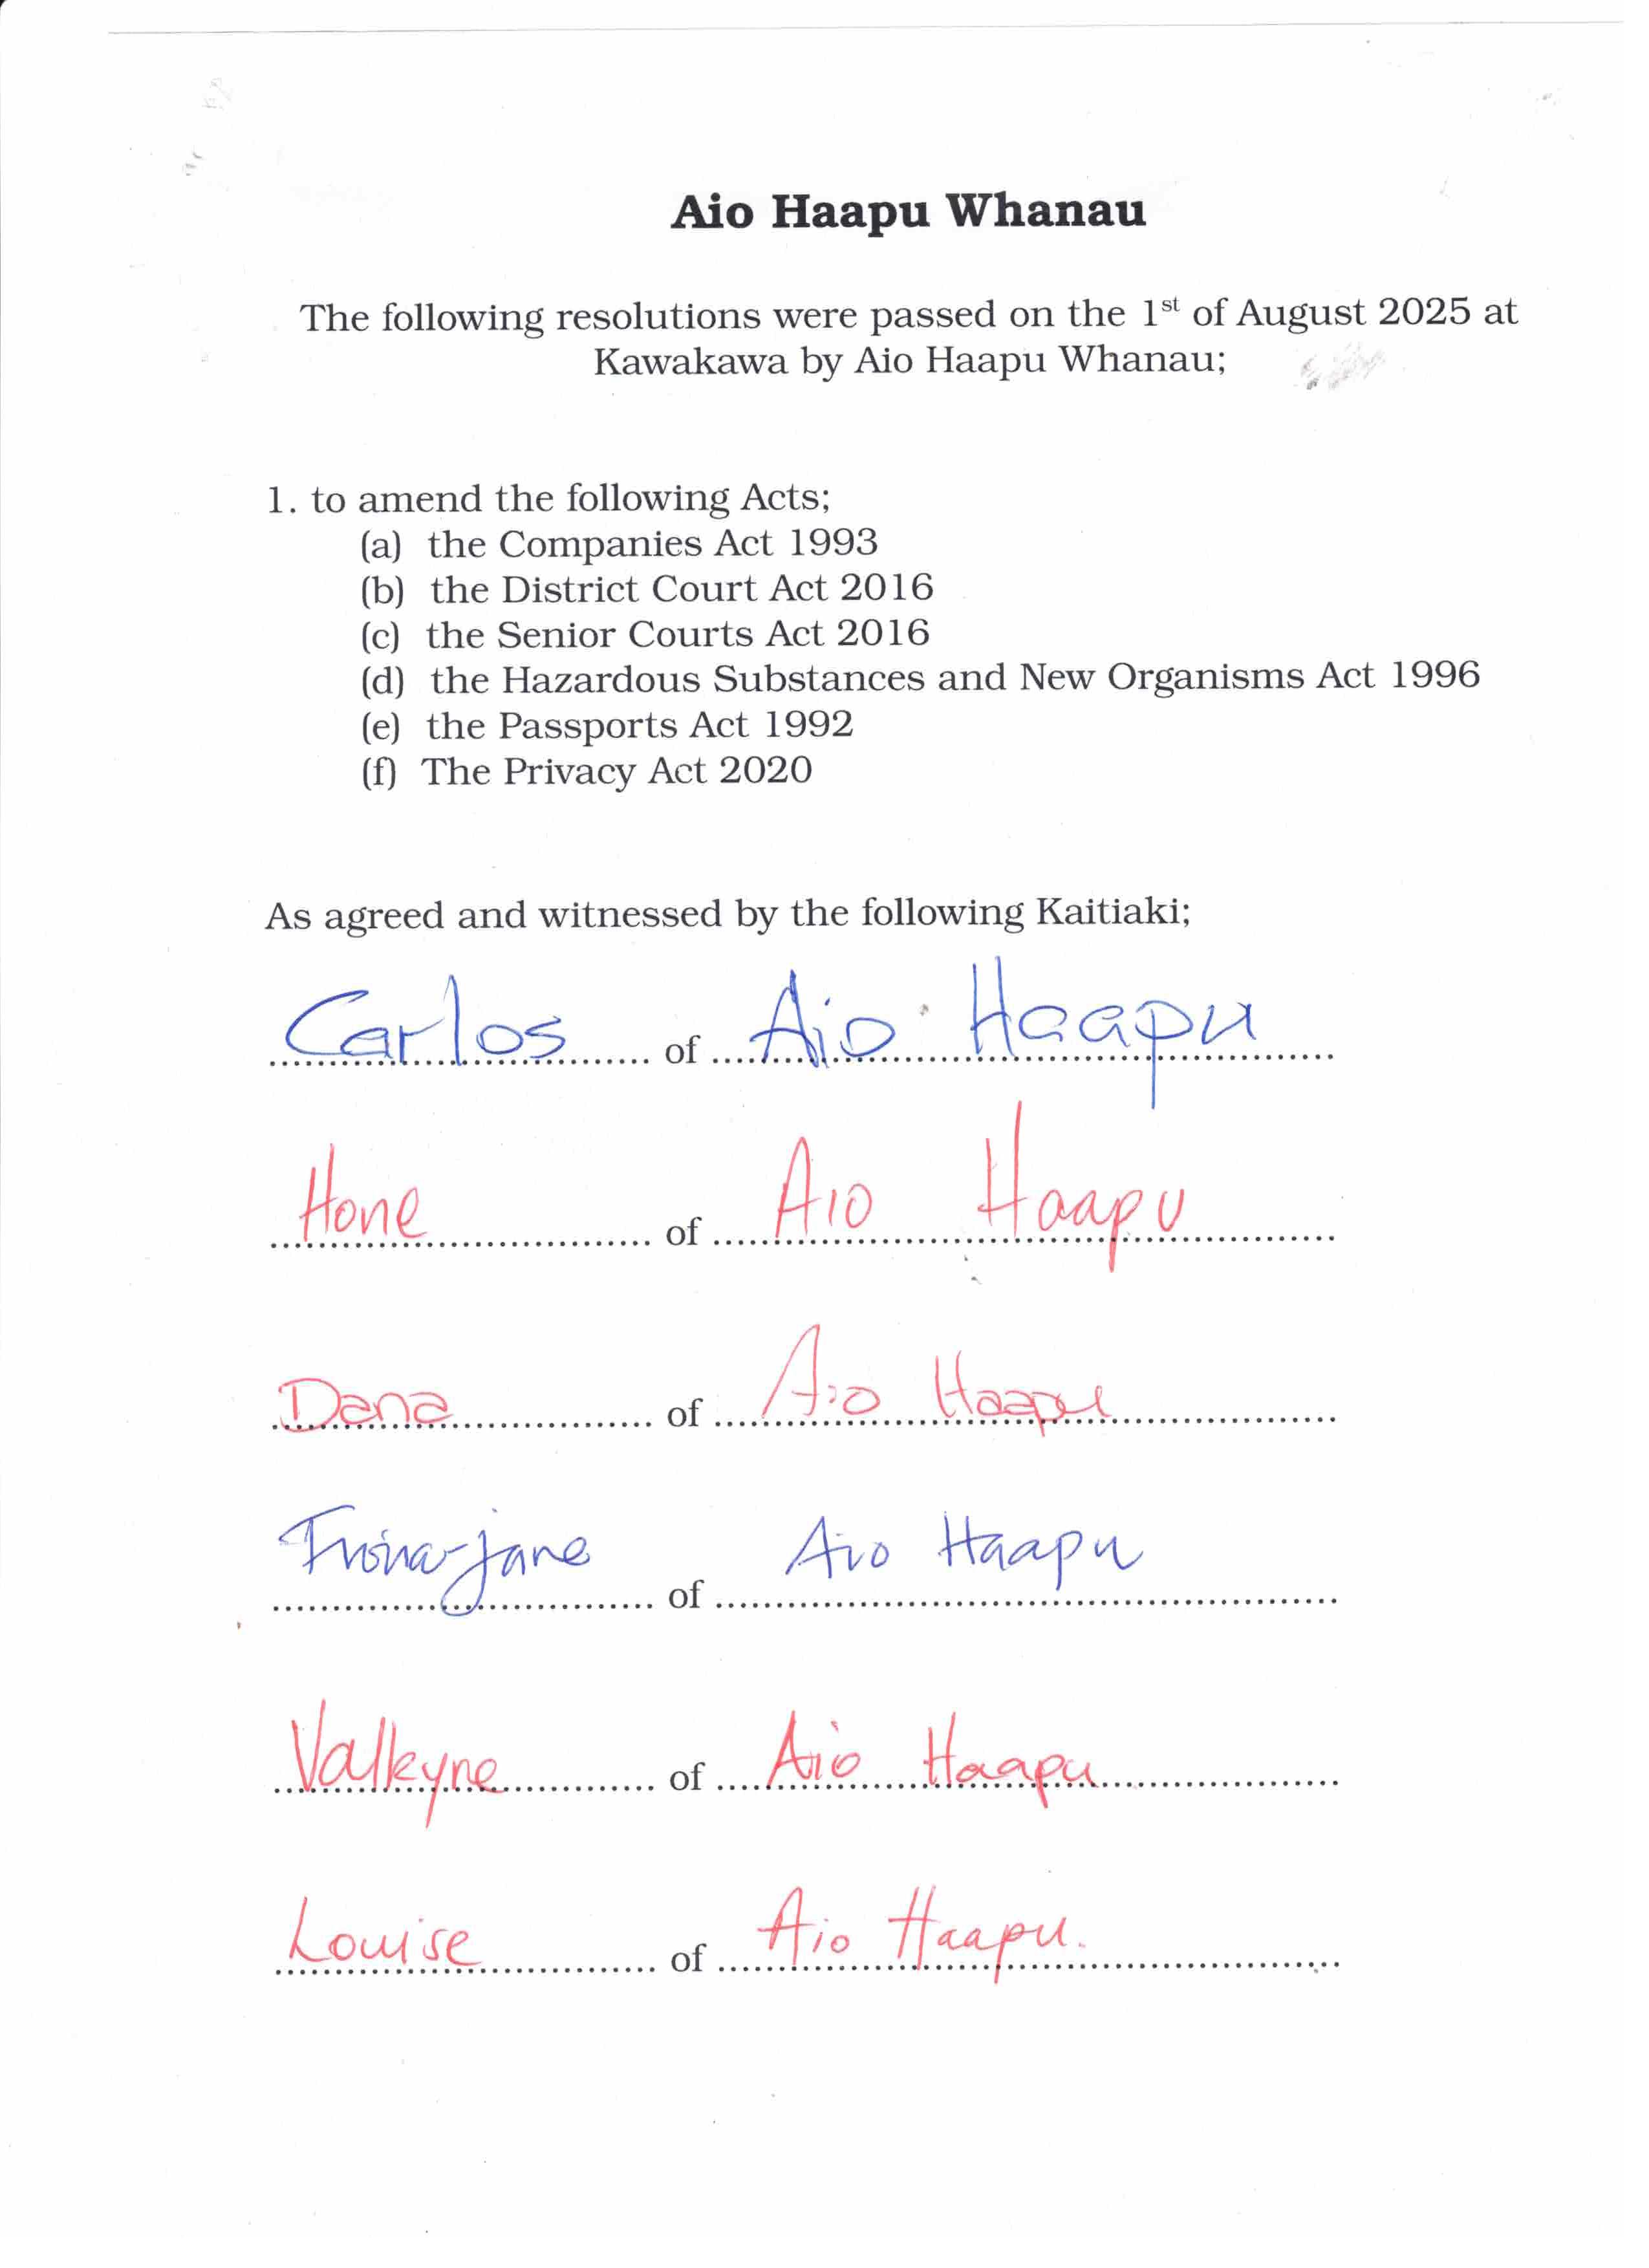 Aio Haapu Whanau
The following resolutions were passed on the 1st of August 2025 at
Kawakawa by Aio Haapu Whanau;
1. to amend the following Acts;
(a) the Companies Act 1993
(b) the District Court Act 2016
(c) the Senior Courts Act 2016
(d) the Hazardous Substances and New Organisms Act 1996
(e) the Passports Act 1992
(f) The Privacy Act 2020
As agreed and witnessed by the following Kaitiaki;
Carlos of Aio Haapu
Hone of Aio Haapu
Dana of Aio Haapu
jane of Aio Haapu
Valkyne of Aio Haapu
Louise of Aio Haapu.